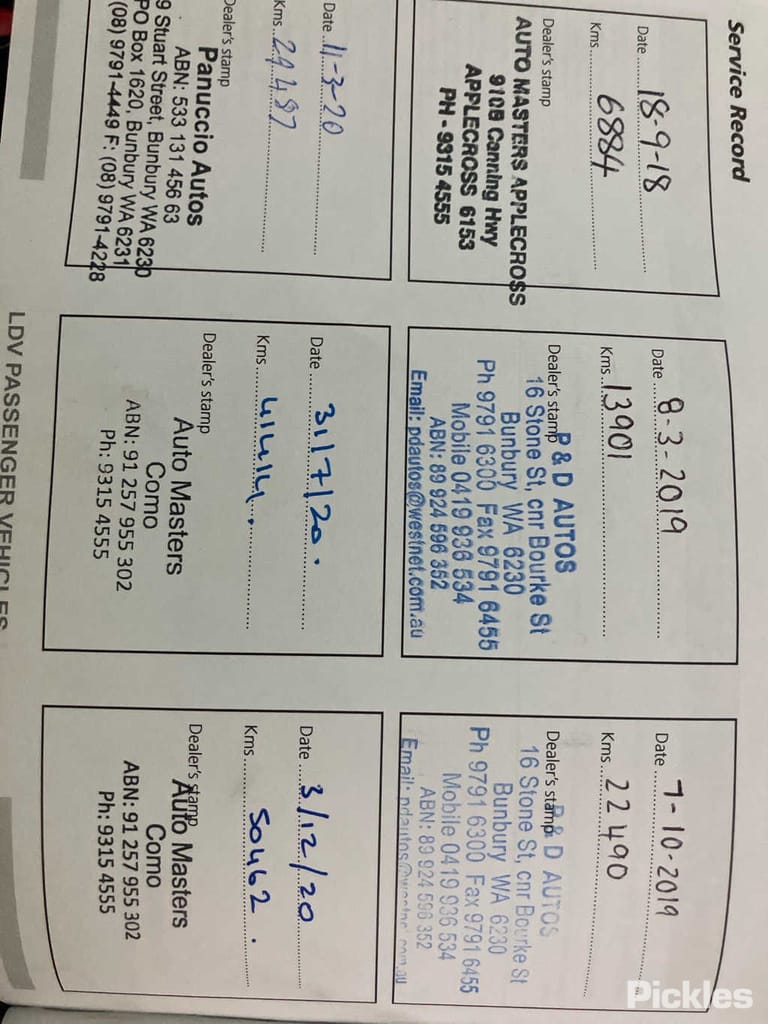 Service Record
Date 18-9-18
Kms 6884
Dealer's stamp
AUTO MASTERS APPLECROSS
910B Canning Hwy
APPLECROSS 6153
PH - 9315 4555
Date 8-3-2019
Kms 13901
Dealer's stamp
P & D AUTOS
16 Stone St, cnr Bourke St
Bunbury WA 6230
Ph 9791 6300 Fax 9791 6455
Mobile 0419 936 534
ABN: 89 924 596 352
Email: pdautos@westnet.com.au
Date 7-10-2019
Kms 22490
Dealer's stamp
P & D AUTOS
16 Stone St, cnr Bourke St
Bunbury WA 6230
Ph 9791 6300 Fax 9791 6455
Mobile 0419 936 534
ABN: 89 924 596 352
Email: pdautos@westnet.com.au
Date 11-3-20
Kms 29487
Dealer's stamp
Panuccio Autos
ABN: 533 131 456 63
9 Stuart Street, Bunbury WA 6230
PO Box 1620, Bunbury WA 6231
(08) 9791-4449 F: (08) 9791-4228
Date 31/7/20.
Kms 41414.
Dealer's stamp
Auto Masters
Como
ABN: 91 257 955 302
Ph: 9315 4555
Date 3/12/20
Kms 50462.
Dealer's stamp
Auto Masters
Como
ABN: 91 257 955 302
Ph: 9315 4555
LDV PASSENGER VEHICLES
Pickles